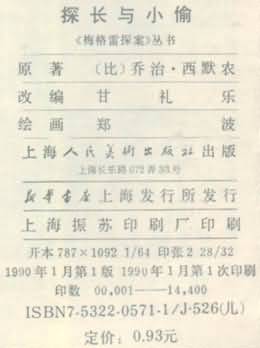 探长与小偷
《梅格雷探案》丛书
原著 (比)乔治·西默农
改编 甘礼乐
绘画 郑波
上海人民美術出版社出版
上海长乐路672弄33号
新华书店上海发行所发行
上海振苏印刷厂印刷
开本787×1092 1/64 印张2 28/32
1990年1月第1版 1990年1月第1次印刷
印数 00,001——14,400
ISBN7-5322-0571-1/J·526(儿)
定价：0.93元